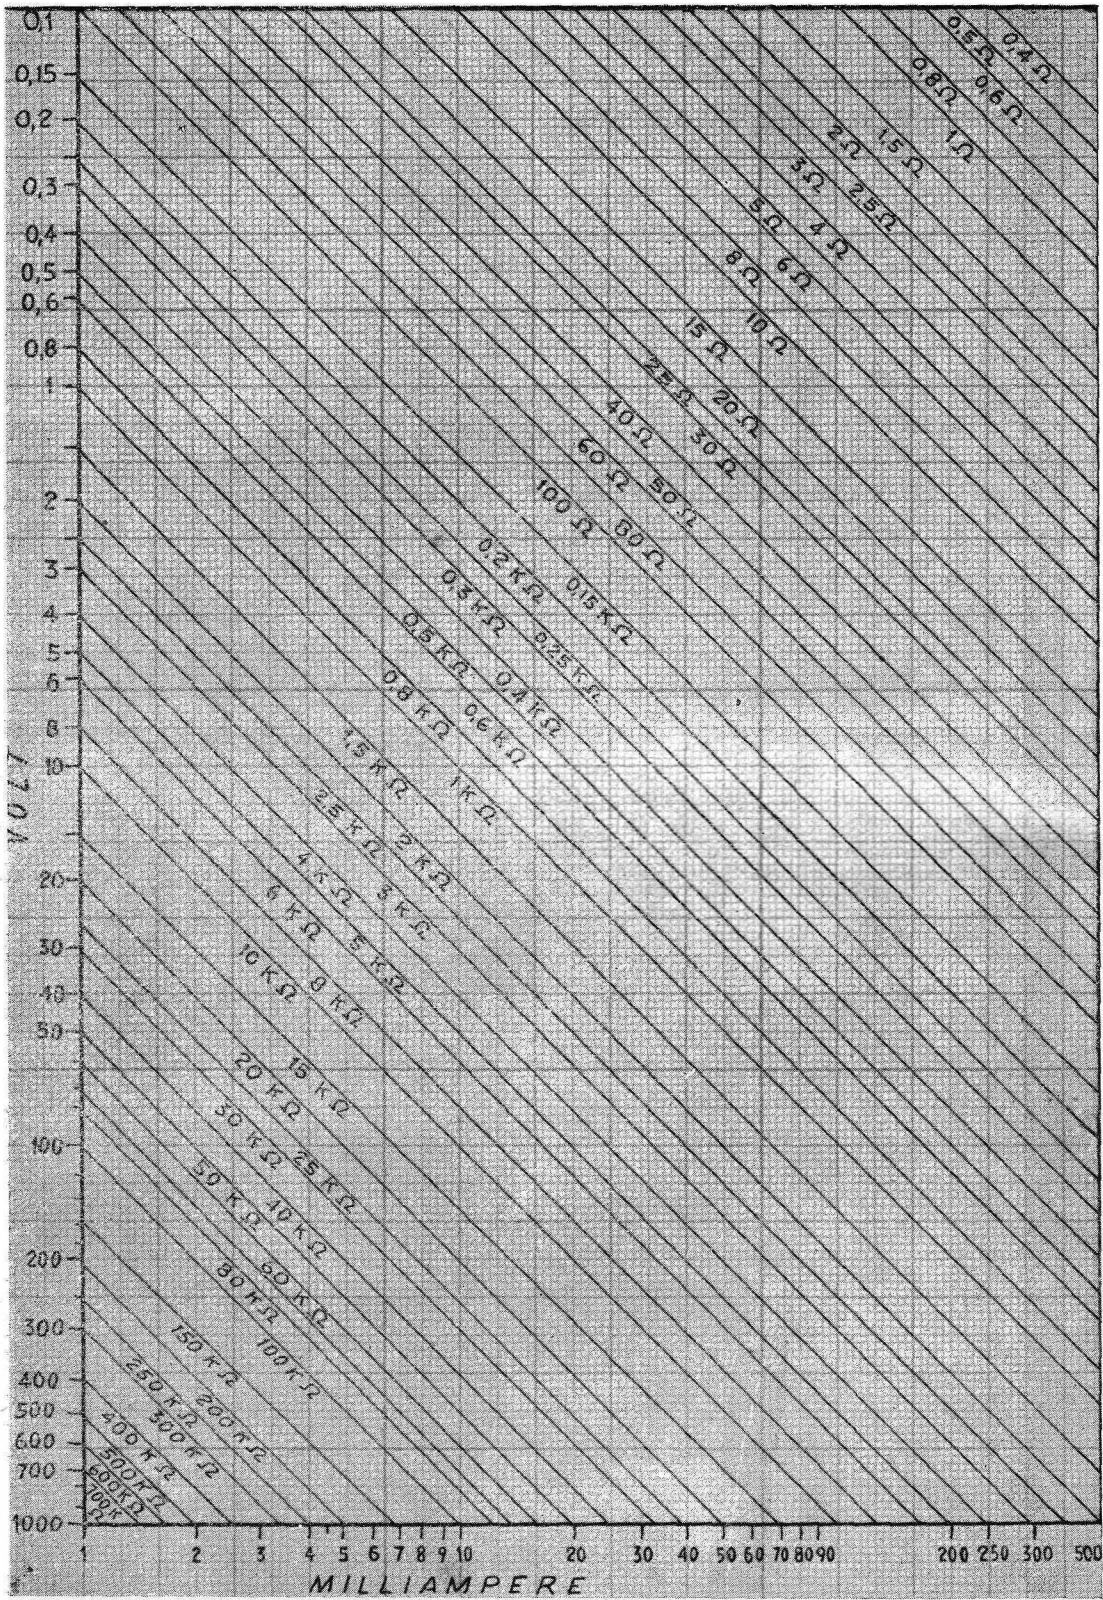 0,1
0,15
0,2
0,3
0,4
0,5
0,6
0,8
1
2
3
4
5
6
8
10
20
30
40
50
100
200
300
400
500
600
700
1000
VOLT
0,5Ω 0,4Ω
0,8Ω 0,6Ω
2Ω 1,5Ω 1Ω
3Ω 2,5Ω
5Ω 4Ω
8Ω 6Ω
15Ω 10Ω
25Ω 20Ω
40Ω 30Ω
60Ω 50Ω
100Ω 80Ω
0,2KΩ 0,15KΩ
0,3KΩ 0,25KΩ
0,5KΩ 0,4KΩ
0,8KΩ 0,6KΩ
1,5KΩ 1KΩ
2,5KΩ 2KΩ
4KΩ 3KΩ
6KΩ 5KΩ
10KΩ 8KΩ
20KΩ 15KΩ
30KΩ 25KΩ
50KΩ 40KΩ
80KΩ 60KΩ
150KΩ 100KΩ
250KΩ 200KΩ
400KΩ 300KΩ
500KΩ
600KΩ
700K
Ω
1 2 3 4 5 6 7 8 9 10 20 30 40 50 60 70 80 90 200 250 300 500
MILLIAMPERE